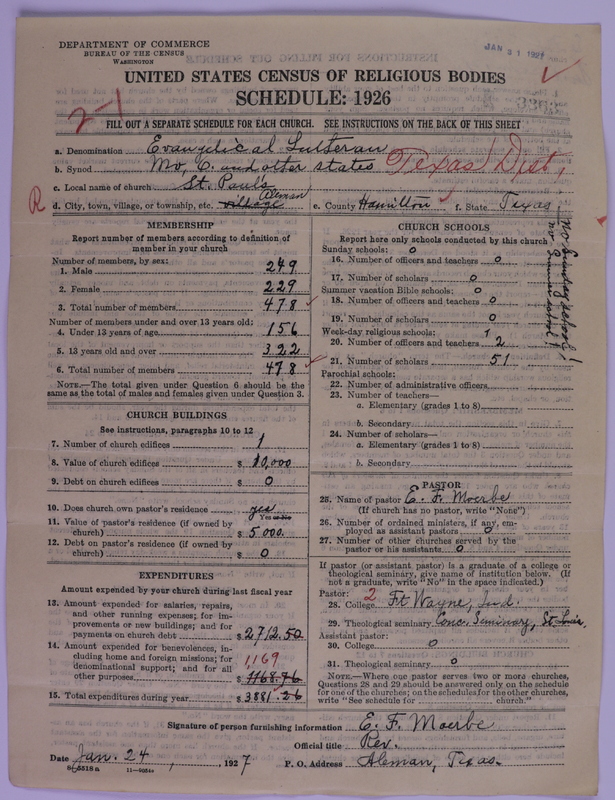 DEPARTMENT OF COMMERCE
BUREAU OF THE CENSUS
WASHINGTON
JAN 31 1927
UNITED STATES CENSUS OF RELIGIOUS BODIES
SCHEDULE: 1926
2-1
FILL OUT A SEPARATE SCHEDULE FOR EACH CHURCH. SEE INSTRUCTIONS ON THE BACK OF THIS SHEET
a. Denomination Evangelical Lutheran
b. Synod Mo, O. and other states Texas Dist,
c. Local name of church St. Paul's
R d. City, town, village, or township, etc. village Aleman e. County Hamilton f. State Texas
MEMBERSHIP
Report number of members according to definition of
member in your church
Number of members, by sex:
1. Male 249
2. Female 229
3. Total number of members 478
Number of members under and over 13 years old:
4. Under 13 years of age 156
5. 13 years old and over 322
6. Total number of members 478
NOTE.—The total given under Question 6 should be the
same as the total of males and females given under Question 3.
CHURCH BUILDINGS
See instructions, paragraphs 10 to 12
7. Number of church edifices 1
8. Value of church edifices $ 10,000
9. Debt on church edifices $ 0
10. Does church own pastor's residence yes
Yes or No
11. Value of pastor's residence (if owned by
church) $ 5000.
12. Debt on pastor's residence (if owned by
church) $ 0
EXPENDITURES
Amount expended by your church during last fiscal year
13. Amount expended for salaries, repairs,
and other running expenses; for im-
provements or new buildings; and for
payments on church debt $ 2712.50
14. Amount expended for benevolences, in-
cluding home and foreign missions; for
denominational support; and for all
other purposes 1,169
$ 1168.76
15. Total expenditures during year $ 3881.26
CHURCH SCHOOLS
Report here only schools conducted by this church
Sunday schools: 0
16. Number of officers and teachers 0
17. Number of scholars 0
Summer vacation Bible schools: 0
18. Number of officers and teachers 0
19. Number of scholars 0
Week-day religious schools: 1
20. Number of officers and teachers 2
21. Number of scholars 51
no Sunday school!
Parochial schools:
22. Number of administrative officers
23. Number of teachers—
a. Elementary (grades 1 to 8)
b. Secondary
24. Number of scholars—
a. Elementary (grades 1 to 8)
b. Secondary
PASTOR
25. Name of pastor E. F. Moerbe
(If church has no pastor, write "None")
26. Number of ordained ministers, if any, em-
ployed as assistant pastors 0
27. Number of other churches served by the
pastor or his assistants 0
If pastor (or assistant pastor) is a graduate of a college or
theological seminary, give name of institution below. (If
not a graduate, write "No" in the space indicated.)
Pastor: 2
28. College Ft Wayne, Ind.
29. Theological seminary Conc. Seminary, St. Louis
Assistant pastor:
30. College 0
31. Theological seminary 0
NOTE.—Where one pastor serves two or more churches,
Questions 28 and 29 should be answered only on the schedule
for one of the churches; on the schedules for the other churches,
write "See schedule for church."
Signature of person furnishing information E. F. Moerbe
Official title Rev.
Date Jan. 24, 1927 P. O. Address Aleman, Texas.
8-5518a 11-9054